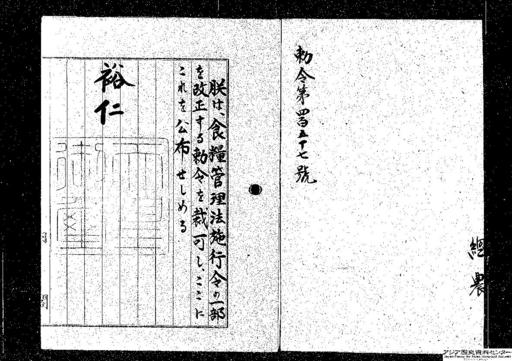 勅令第四百五十七號
經
農
朕は、食糧管理法施行令の一部
を改正する勅令を裁可し、ここに
これを公布せしめる
裕仁
アジア歴史資料センター